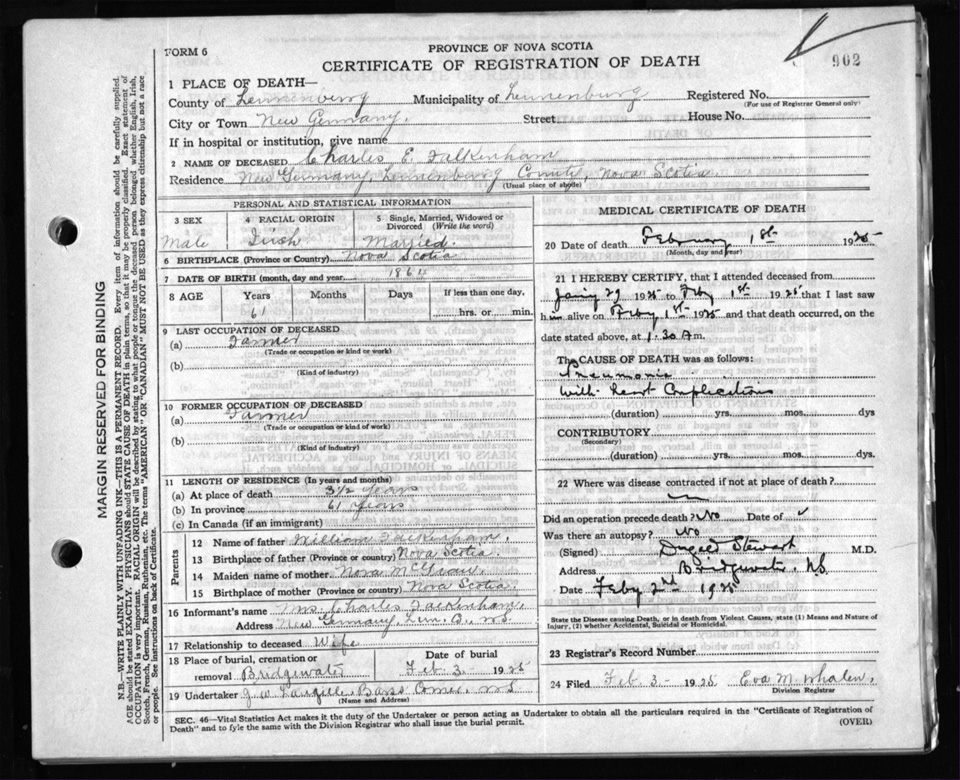 FORM 6
PROVINCE OF NOVA SCOTIA
CERTIFICATE OF REGISTRATION OF DEATH
902
1 PLACE OF DEATH—
County of Lunenburg Municipality of Lunenburg Registered No.
(For use of Registrar General only)
City or Town New Germany. Street House No.
If in hospital or institution, give name
2 NAME OF DECEASED Charles E. Falkenham
Residence New Germany, Lunenburg County, Nova Scotia.
(Usual place of abode)
PERSONAL AND STATISTICAL INFORMATION
3 SEX
Male
4 RACIAL ORIGIN
Irish
5 Single, Married, Widowed or Divorced (Write the word)
Married.
6 BIRTHPLACE (Province or Country) Nova Scotia
7 DATE OF BIRTH (month, day and year) 1864
8 AGE Years Months Days If less than one day,
61 hrs. or min.
9 LAST OCCUPATION OF DECEASED
(a) Farmer
(Trade or occupation or kind or work)
(b)
(Kind of industry)
10 FORMER OCCUPATION OF DECEASED
(a) Farmer
(Trade or occupation or kind of work)
(b)
(Kind of industry)
11 LENGTH OF RESIDENCE (In years and months)
(a) At place of death 3½ years
(b) In province 61 years
(c) In Canada (if an immigrant)
Parents
12 Name of father William Falkenham.
13 Birthplace of father (Province or country) Nova Scotia.
14 Maiden name of mother. Nora
15 Birthplace of mother (Province or country) Nova Scotia.
16 Informant's name Mrs. Charles Falkenham.
Address New Germany, Lun. Co., N.S.
17 Relationship to deceased Wife
18 Place of burial, cremation or removal Bridgewater
Date of burial
Feb. 3- 1925
19 Undertaker J. W. Barss Corner, N.S.
(Name and Address)
MEDICAL CERTIFICATE OF DEATH
20 Date of death February 1st 1925
(Month, day and year)
21 I HEREBY CERTIFY, that I attended deceased from
Jany 29 1925 to Feby 1st 1925 that I last saw
him alive on Feby 1st 1925 and that death occurred, on the
date stated above, at 1.30 A m.
The CAUSE OF DEATH was as follows:
Pneumonia
with heart Complications
(duration) yrs. mos. dys
CONTRIBUTORY
(Secondary)
(duration) yrs. mos. dys.
22 Where was disease contracted if not at place of death?
Did an operation precede death? No Date of ✓
Was there an autopsy? No
(Signed) Dugald Stewart M.D.
Address Bridgewater, N.S.
Date Feby 2nd 1925
State the Disease causing Death, or in death from Violent Causes, state (1) Means and Nature of Injury, (2) whether Accidental, Suicidal or Homicidal.
23 Registrar's Record Number
24 Filed Feb. 3- 1925 Eva M. Whalen.
Division Registrar
SEC. 46—Vital Statistics Act makes it the duty of the Undertaker or person acting as Undertaker to obtain all the particulars required in the "Certificate of Registration of
Death" and to fyle the same with the Division Registrar who shall issue the burial permit.
(OVER)
MARGIN RESERVED FOR BINDING
N.B.—WRITE PLAINLY WITH UNFADING INK—THIS IS A PERMANENT RECORD. Every item of information should be carefully supplied.
AGE should be stated EXACTLY. PHYSICIANS should STATE CAUSE OF DEATH in plain terms, so that it may be properly classified. Exact statement of
OCCUPATION is very important. RACIAL ORIGIN will be described by stating to what people or tongue the deceased person belonged whether English, Irish,
Scotch, French, German, Russian, Ruthenian, etc. The terms "AMERICAN" OR "CANADIAN" MUST NOT BE USED as they express citizenship but not a race
or people. See instructions on back of Certificate.